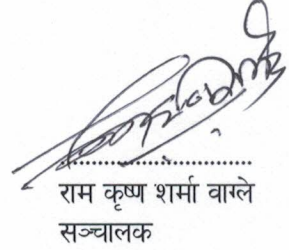 ..............................
राम कृष्ण शर्मा वाग्ले
सञ्चालक